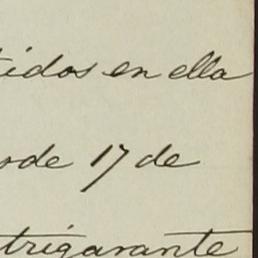 tidos en ella
ode 17 de
trigarante